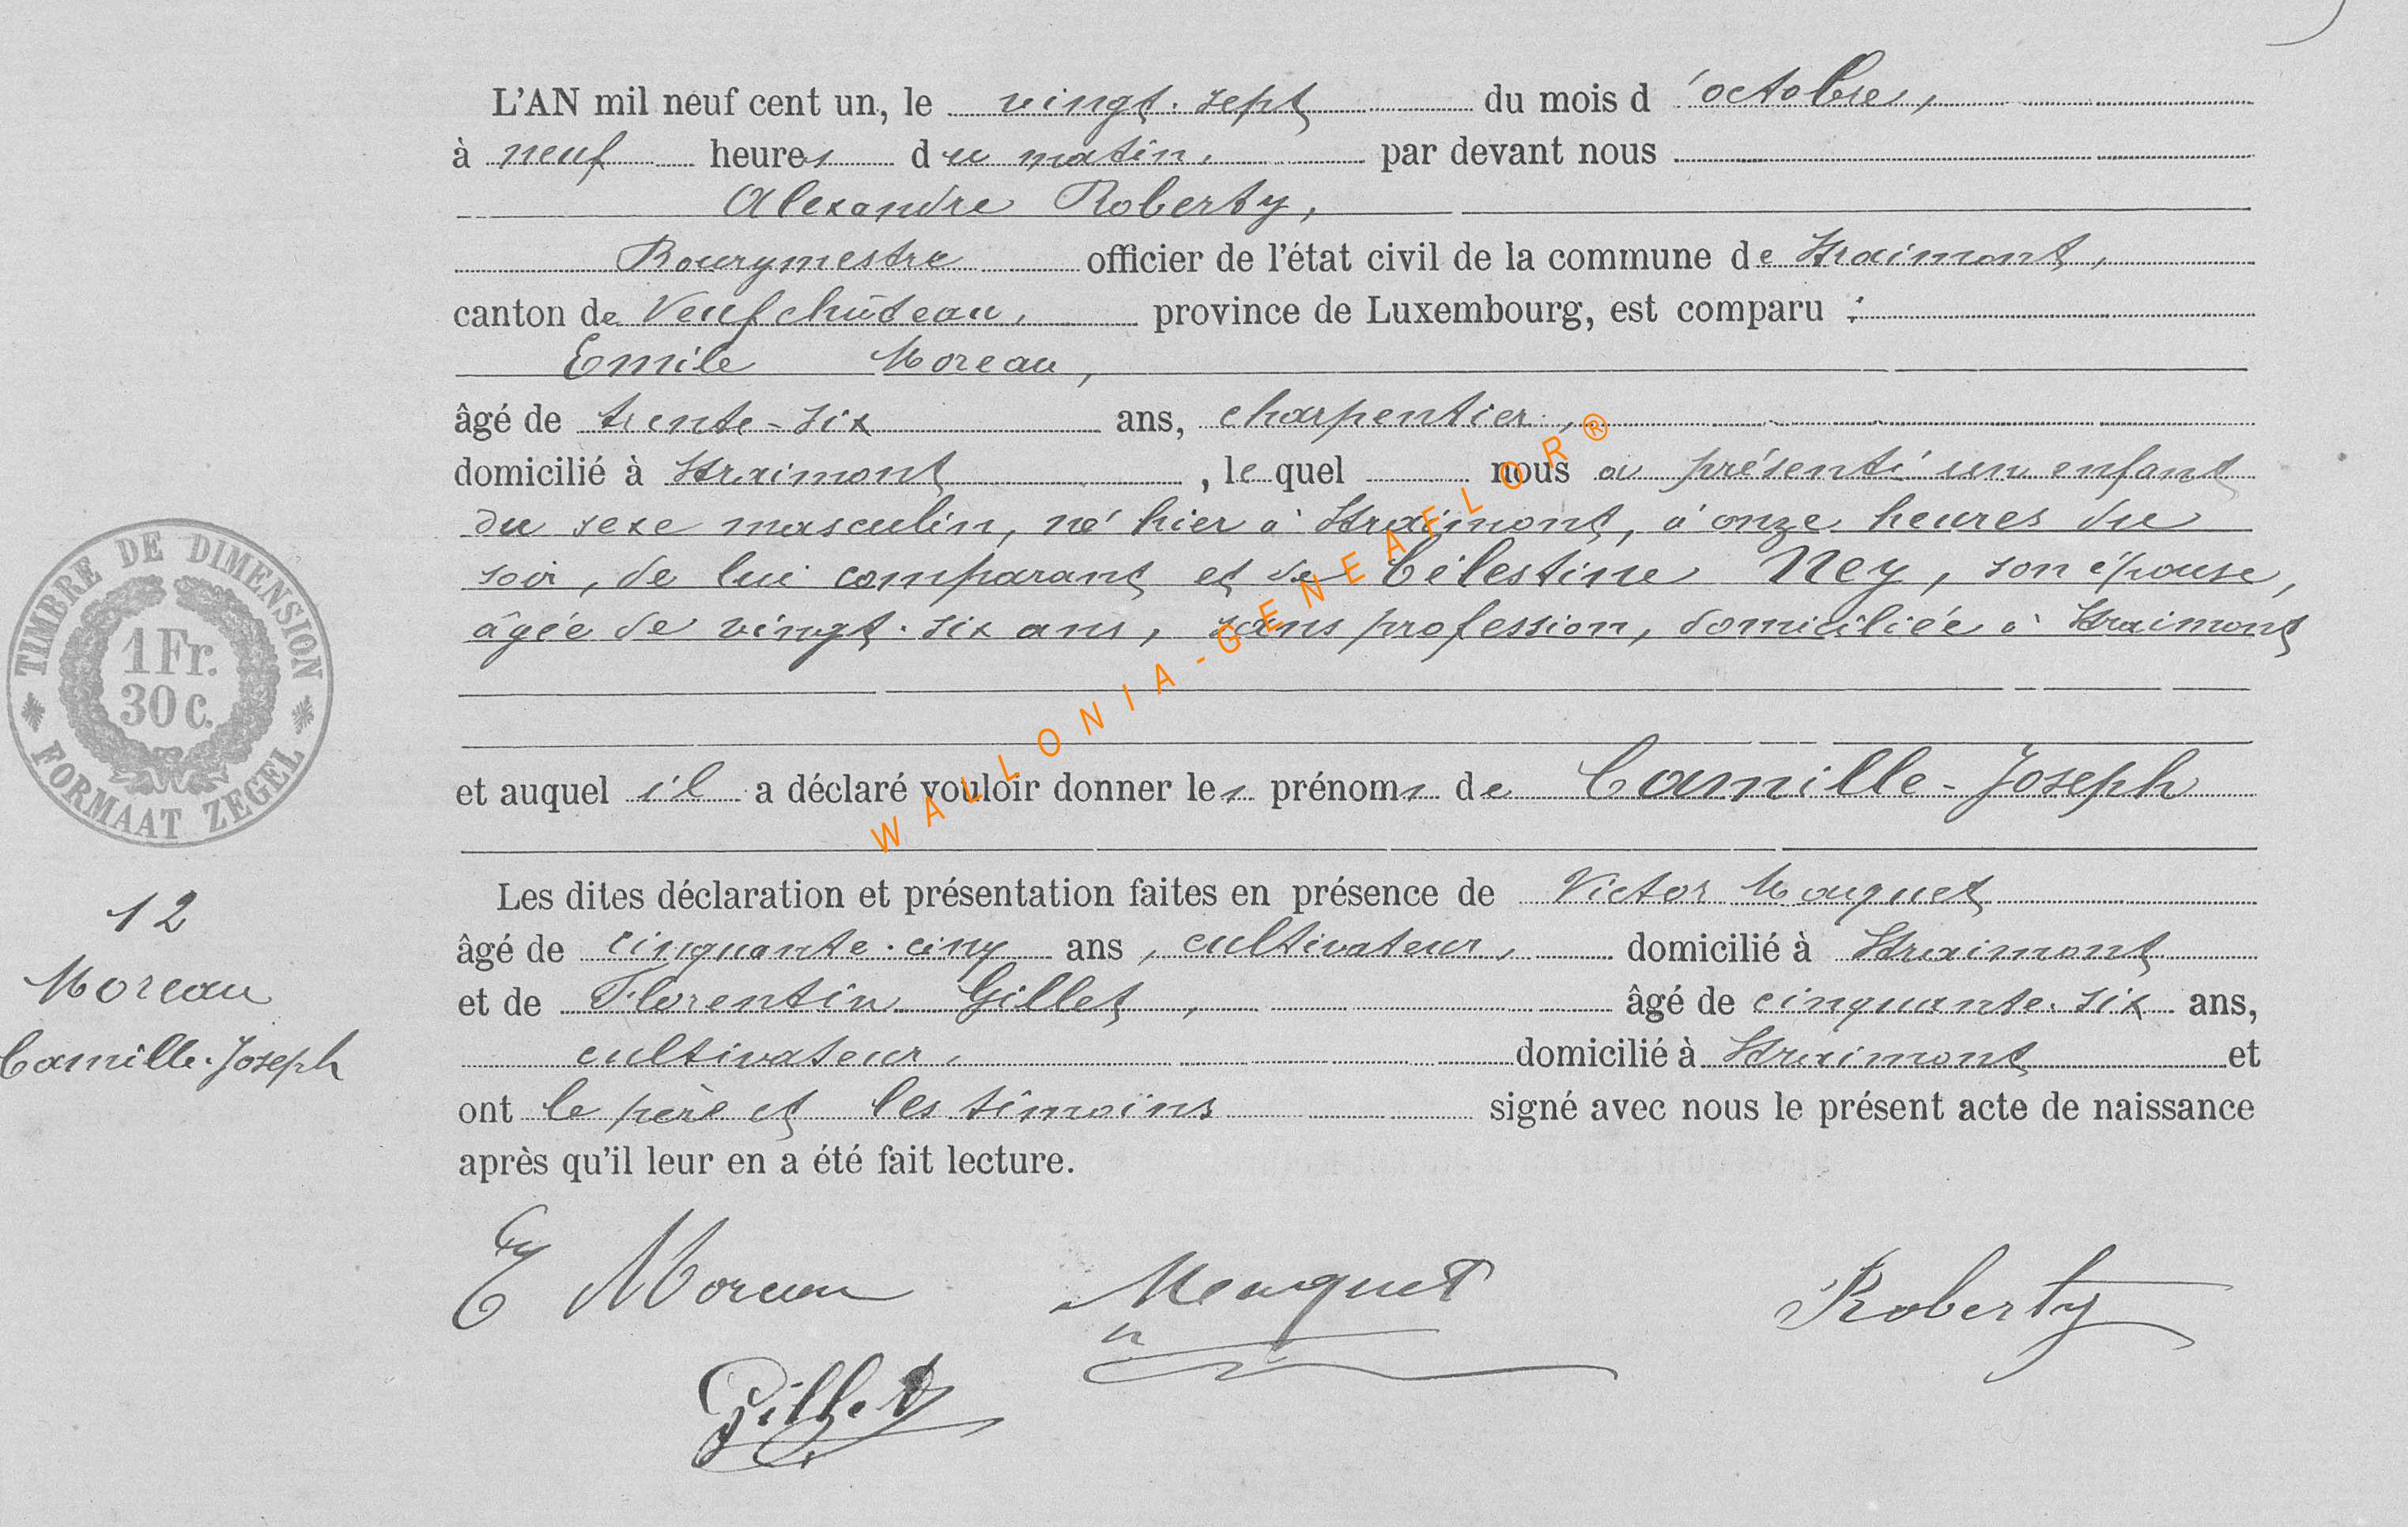 L'AN mil neuf cent un, le vingt-sept du mois d'octobre,
à neuf heures du matin, par devant nous
Alexandre Roberty,
Bourgmestre officier de l'état civil de la commune de Straimont,
canton de Neufchâteau, province de Luxembourg, est comparu :
Emile Moreau,
âgé de trente-six ans, charpentier,
domicilié à Straimont, lequel nous a présenté un enfant
du sexe masculin, né hier à Straimont, à onze heures du
soir, de lui comparant et de Célestine Ney, son épouse,
âgée de vingt-six ans, sans profession, domiciliée à Straimont
et auquel il a déclaré vouloir donner les prénoms de Camille-Joseph
Les dites déclaration et présentation faites en présence de Victor Mouquet
âgé de cinquante-cinq ans, cultivateur, domicilié à Straimont
et de Florentin Gillet, âgé de cinquante-six ans,
cultivateur, domicilié à Straimont et
ont le père et les témoins signé avec nous le présent acte de naissance
après qu'il leur en a été fait lecture.
TIMBRE DE DIMENSION
1 Fr.
30 c.
FORMAAT ZEGEL
12
Moreau
Camille-Joseph
E Moreau
Mouquet
Roberty
Gillet
WALLONIA-GENEAFLOR®